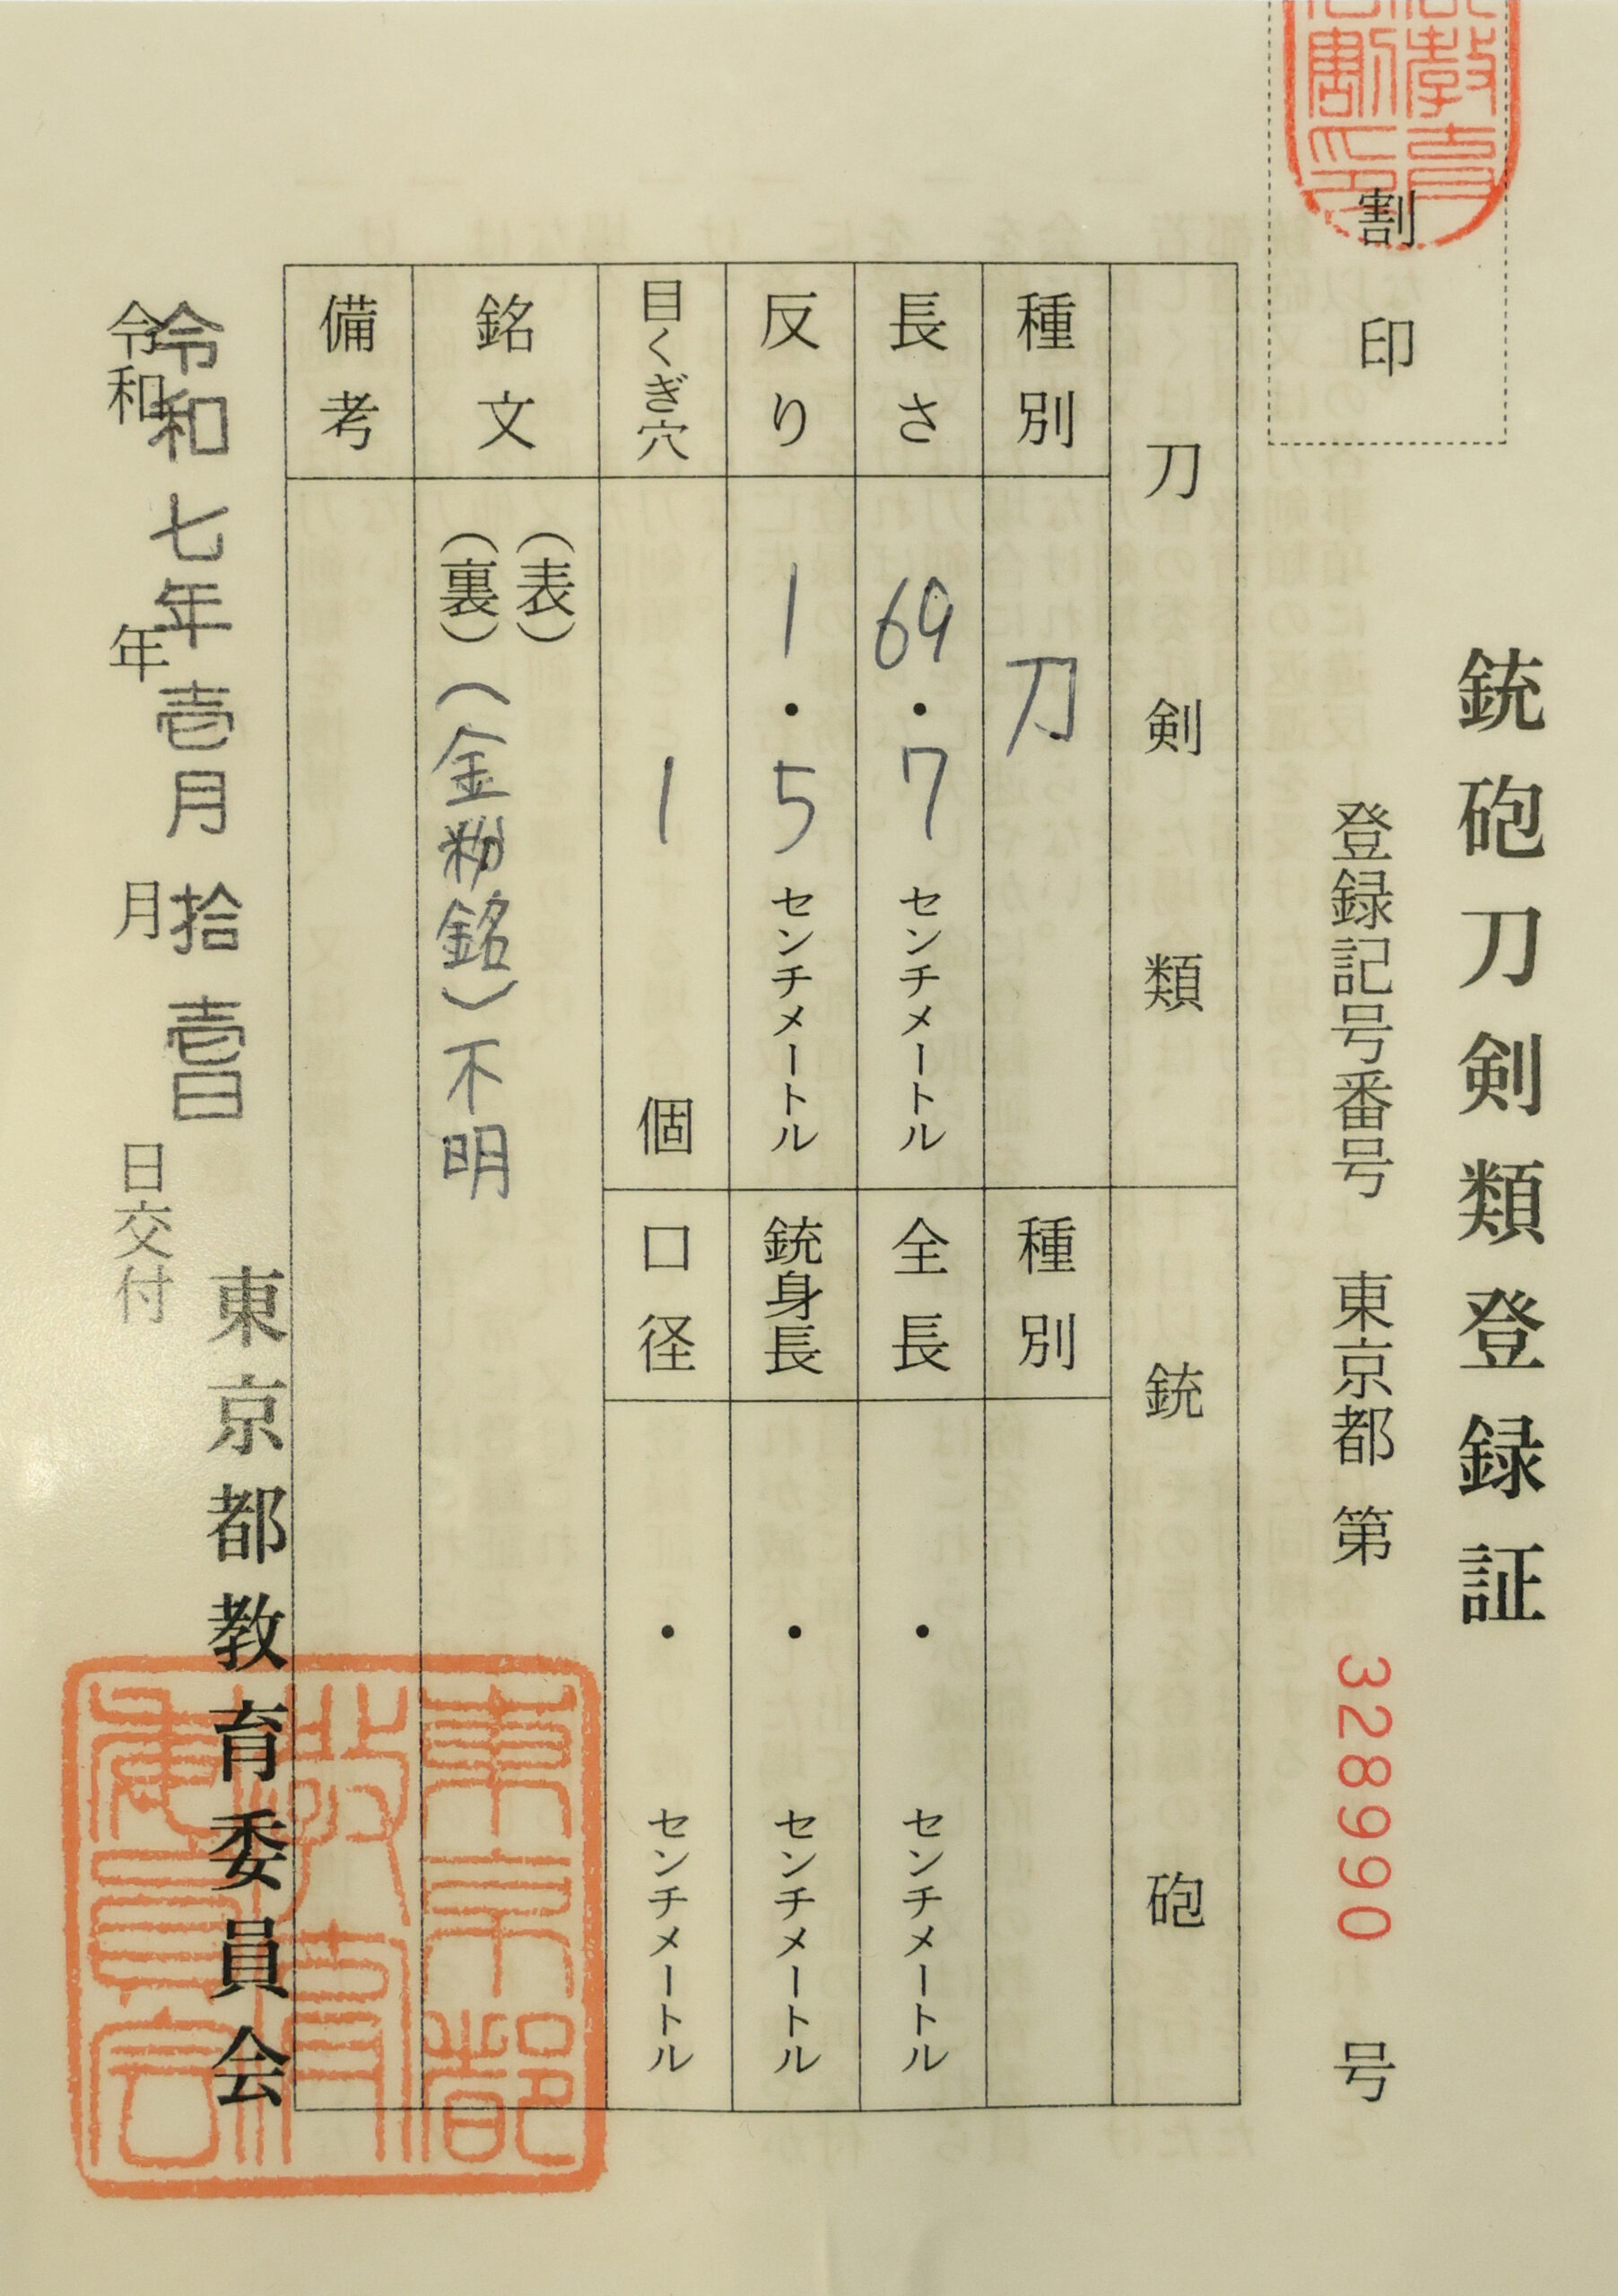 銃砲刀剣類登録証
登録記号番号 東京都 第 328990 号
割印
刀剣類
銃砲
種別 刀
種別
長さ 69・7 センチメートル
全長 ・ センチメートル
反り 1・5 センチメートル
銃身長 ・ センチメートル
目くぎ穴 1 個
口径 ・ センチメートル
銘文
(表)
(裏)(金粉銘)不明
備考
東京都教育委員会
令和七年壱月拾壱日
令和 年 月 日交付
東京都教育委員会